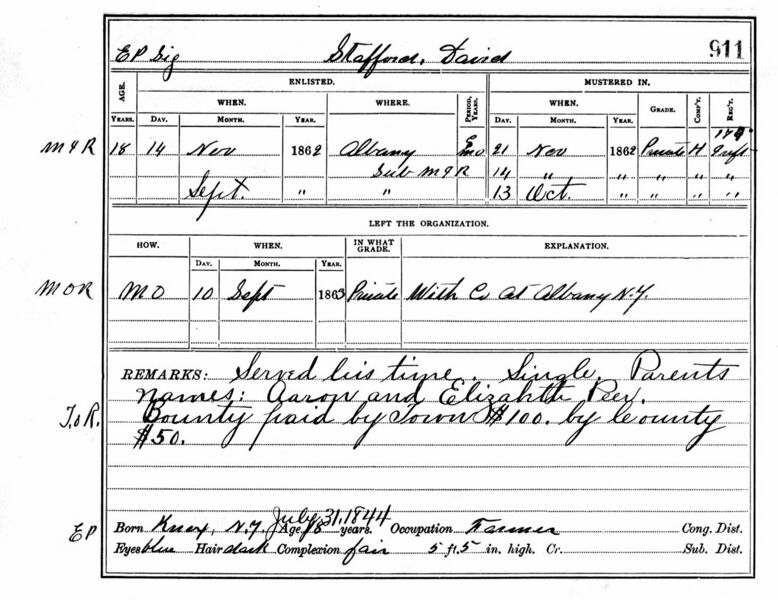 EP Sig Stafford, David 911
AGE. ENLISTED. MUSTERED IN.
WHEN. WHERE. PERIOD, YEARS. WHEN. GRADE. COMP'Y. REG'T.
YEARS. DAY. MONTH. YEAR. DAY. MONTH. YEAR.
M&R 18 14 Nov 1862 Albany 9 mo 21 Nov 1862 Private H 177 Inft
Sub M&R 14 " " " " "
Sept. " " 13 Oct. " " " "
LEFT THE ORGANIZATION.
HOW. WHEN. IN WHAT GRADE. EXPLANATION.
DAY. MONTH. YEAR.
MOR MO 10 Sept 1863 Private With Co at Albany N.Y.
REMARKS: Served his time. Single, Parents
names: Aaron and Elizabeth Peer.
T.o R. Bounty paid by Town $100. by County
$50.
July 31, 1844
EP Born Knox, N.Y. Age 18 years. Occupation Farmer Cong. Dist.
Eyes blue Hair dark Complexion fair 5 ft. 5 in. high. Cr. Sub. Dist.